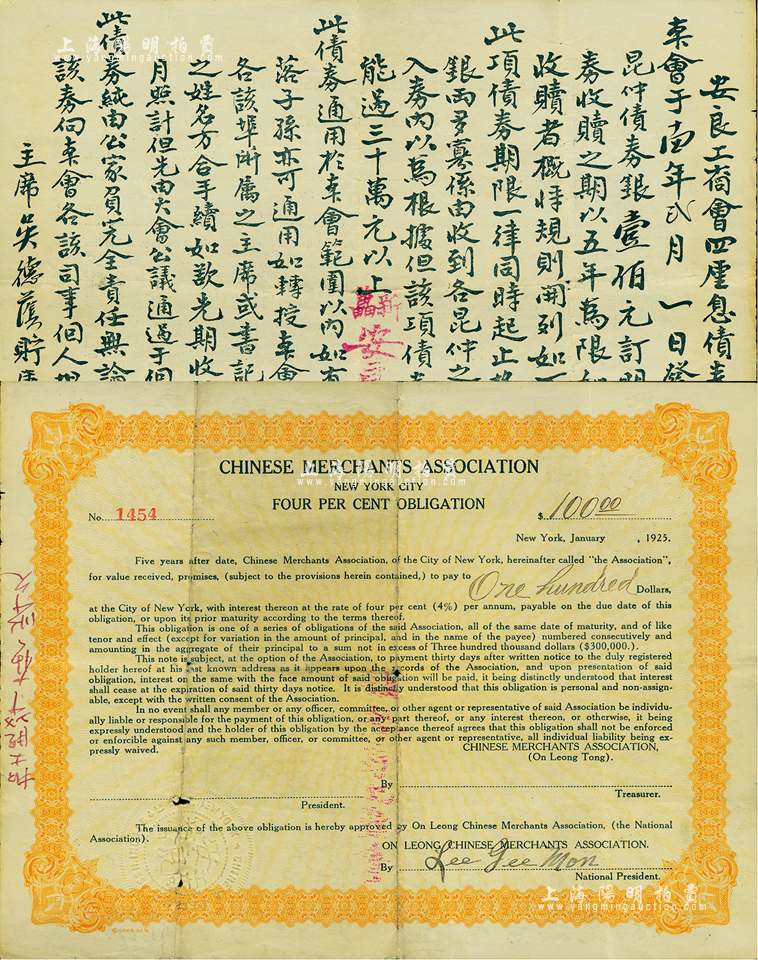 安良工商會四厘息債券
昆仲債券銀壹佰元訂明
券收贖之期以五年為限如
收贖者概將規則開列如
此項債券期限一律同時起止
銀両多寡係由收到各昆仲之
入券內以為根據但該項債
能過三十萬元以上
此債券通用於
會範圍以內如有
落子孫亦可通用如轉授
各該埠所屬之主席或書記
之姓名方合手續如欵先期收
月照計但先由大會公議通過于
此債券純由公家負完全責任無論
該券向
會各該司事個人
主席吳德
上海陽明拍賣
www.yangmingauction.com
CHINESE MERCHANTS ASSOCIATION
NEW YORK CITY
FOUR PER CENT OBLIGATION
No. 1454
$ 100.00
New York, January , 1925.
Five years after date, Chinese Merchants Association, of the City of New York, hereinafter called "the Association",
for value received, promises, (subject to the provisions herein contained,) to pay to One hundred Dollars,
at the City of New York, with interest thereon at the rate of four per cent (4%) per annum, payable on the due date of this
obligation, or upon its prior maturity according to the terms thereof.
This obligation is one of a series of obligations of the said Association, all of the same date of maturity, and of like
tenor and effect (except for variation in the amount of principal, and in the name of the payee) numbered consecutively and
amounting in the aggregate of their principal to a sum not in excess of Three hundred thousand dollars ($300,000.)
This note is subject, at the option of the Association, to payment thirty days after written notice to the duly registered
holder hereof at his last known address as it appears upon the records of the Association, and upon presentation of said
obligation, interest on the same with the face amount of said obligation will be paid, it being distinctly understood that interest
shall cease at the expiration of said thirty days notice. It is distinctly understood that this obligation is personal and non-assign-
able, except with the written consent of the Association.
In no event shall any member or any officer, committee, or other agent or representative of said Association be individu-
ally liable or responsible for the payment of this obligation, or any part thereof, or any interest thereon, or otherwise, it being
expressly understood and the holder of this obligation by the acceptance thereof agrees that this obligation shall not be enforced
or enforcible against any such member, officer, or committee, or other agent or representative, all individual liability being ex-
pressly waived.
CHINESE MERCHANTS ASSOCIATION,
(On Leong Tong).
By
President.
Treasurer.
The issuance of the above obligation is hereby approved by On Leong Chinese Merchants Association, (the National
Association).
ON LEONG CHINESE MERCHANTS ASSOCIATION.
By Lee Gee Mon
National President.
上海陽明拍賣
www.yangmingauction.com